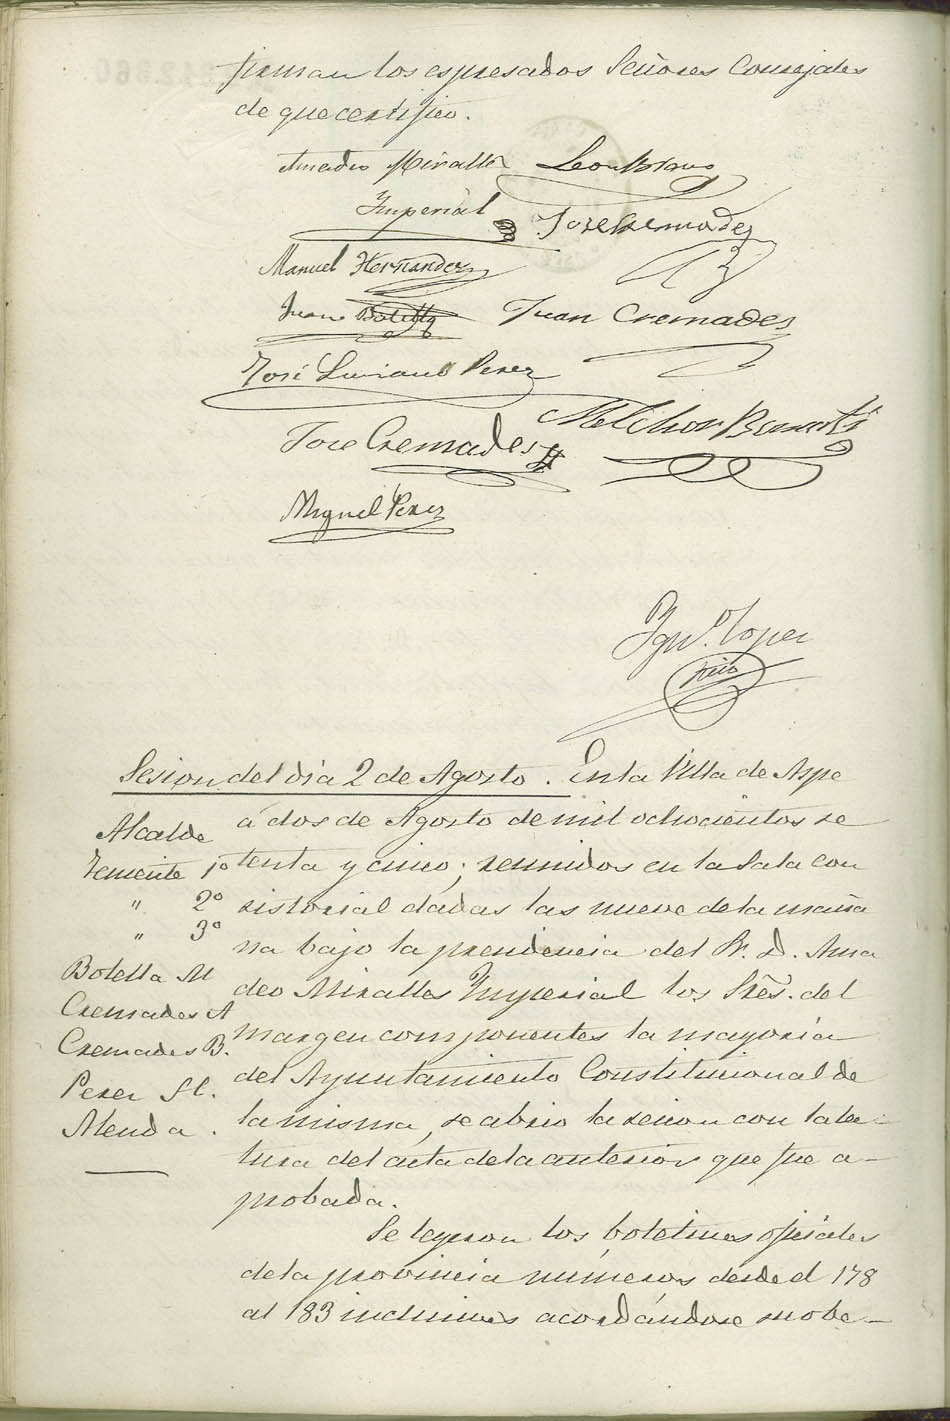 firman los espresados Señores Concejales
de que certifico.
Amadeo Miralles Leon Bravo
Imperial Jose Cremades
Manuel Hernandez
Juan Botella Juan Cremades
José Luciano Perez
Melchor
Jose Cremades
Miguel Perez
Igno. Lopez
Sesion del dia 2 de Agosto. En la Villa de Aspe
á dos de Agosto de mil ochocientos se
tenta y cinco; reunidos en la Sala con
sistorial dadas las nueve de la maña
na bajo la presidencia del Sr. D. Ama
deo Miralles Imperial los Sres. del
margen componentes la mayoria
del Ayuntamiento Constitucional de
la misma, se abrio la sesion con la lec-
tura del acta de la anterior que fue a-
probada.
Se leyeron los boletines oficiales
de la provincia números desde el 178
al 183 inclusives acordándose su obe-
Alcalde
Teniente 1º
" 2º
" 3º
Botella M
Cremades A
Cremades B.
Perez
Alenda.